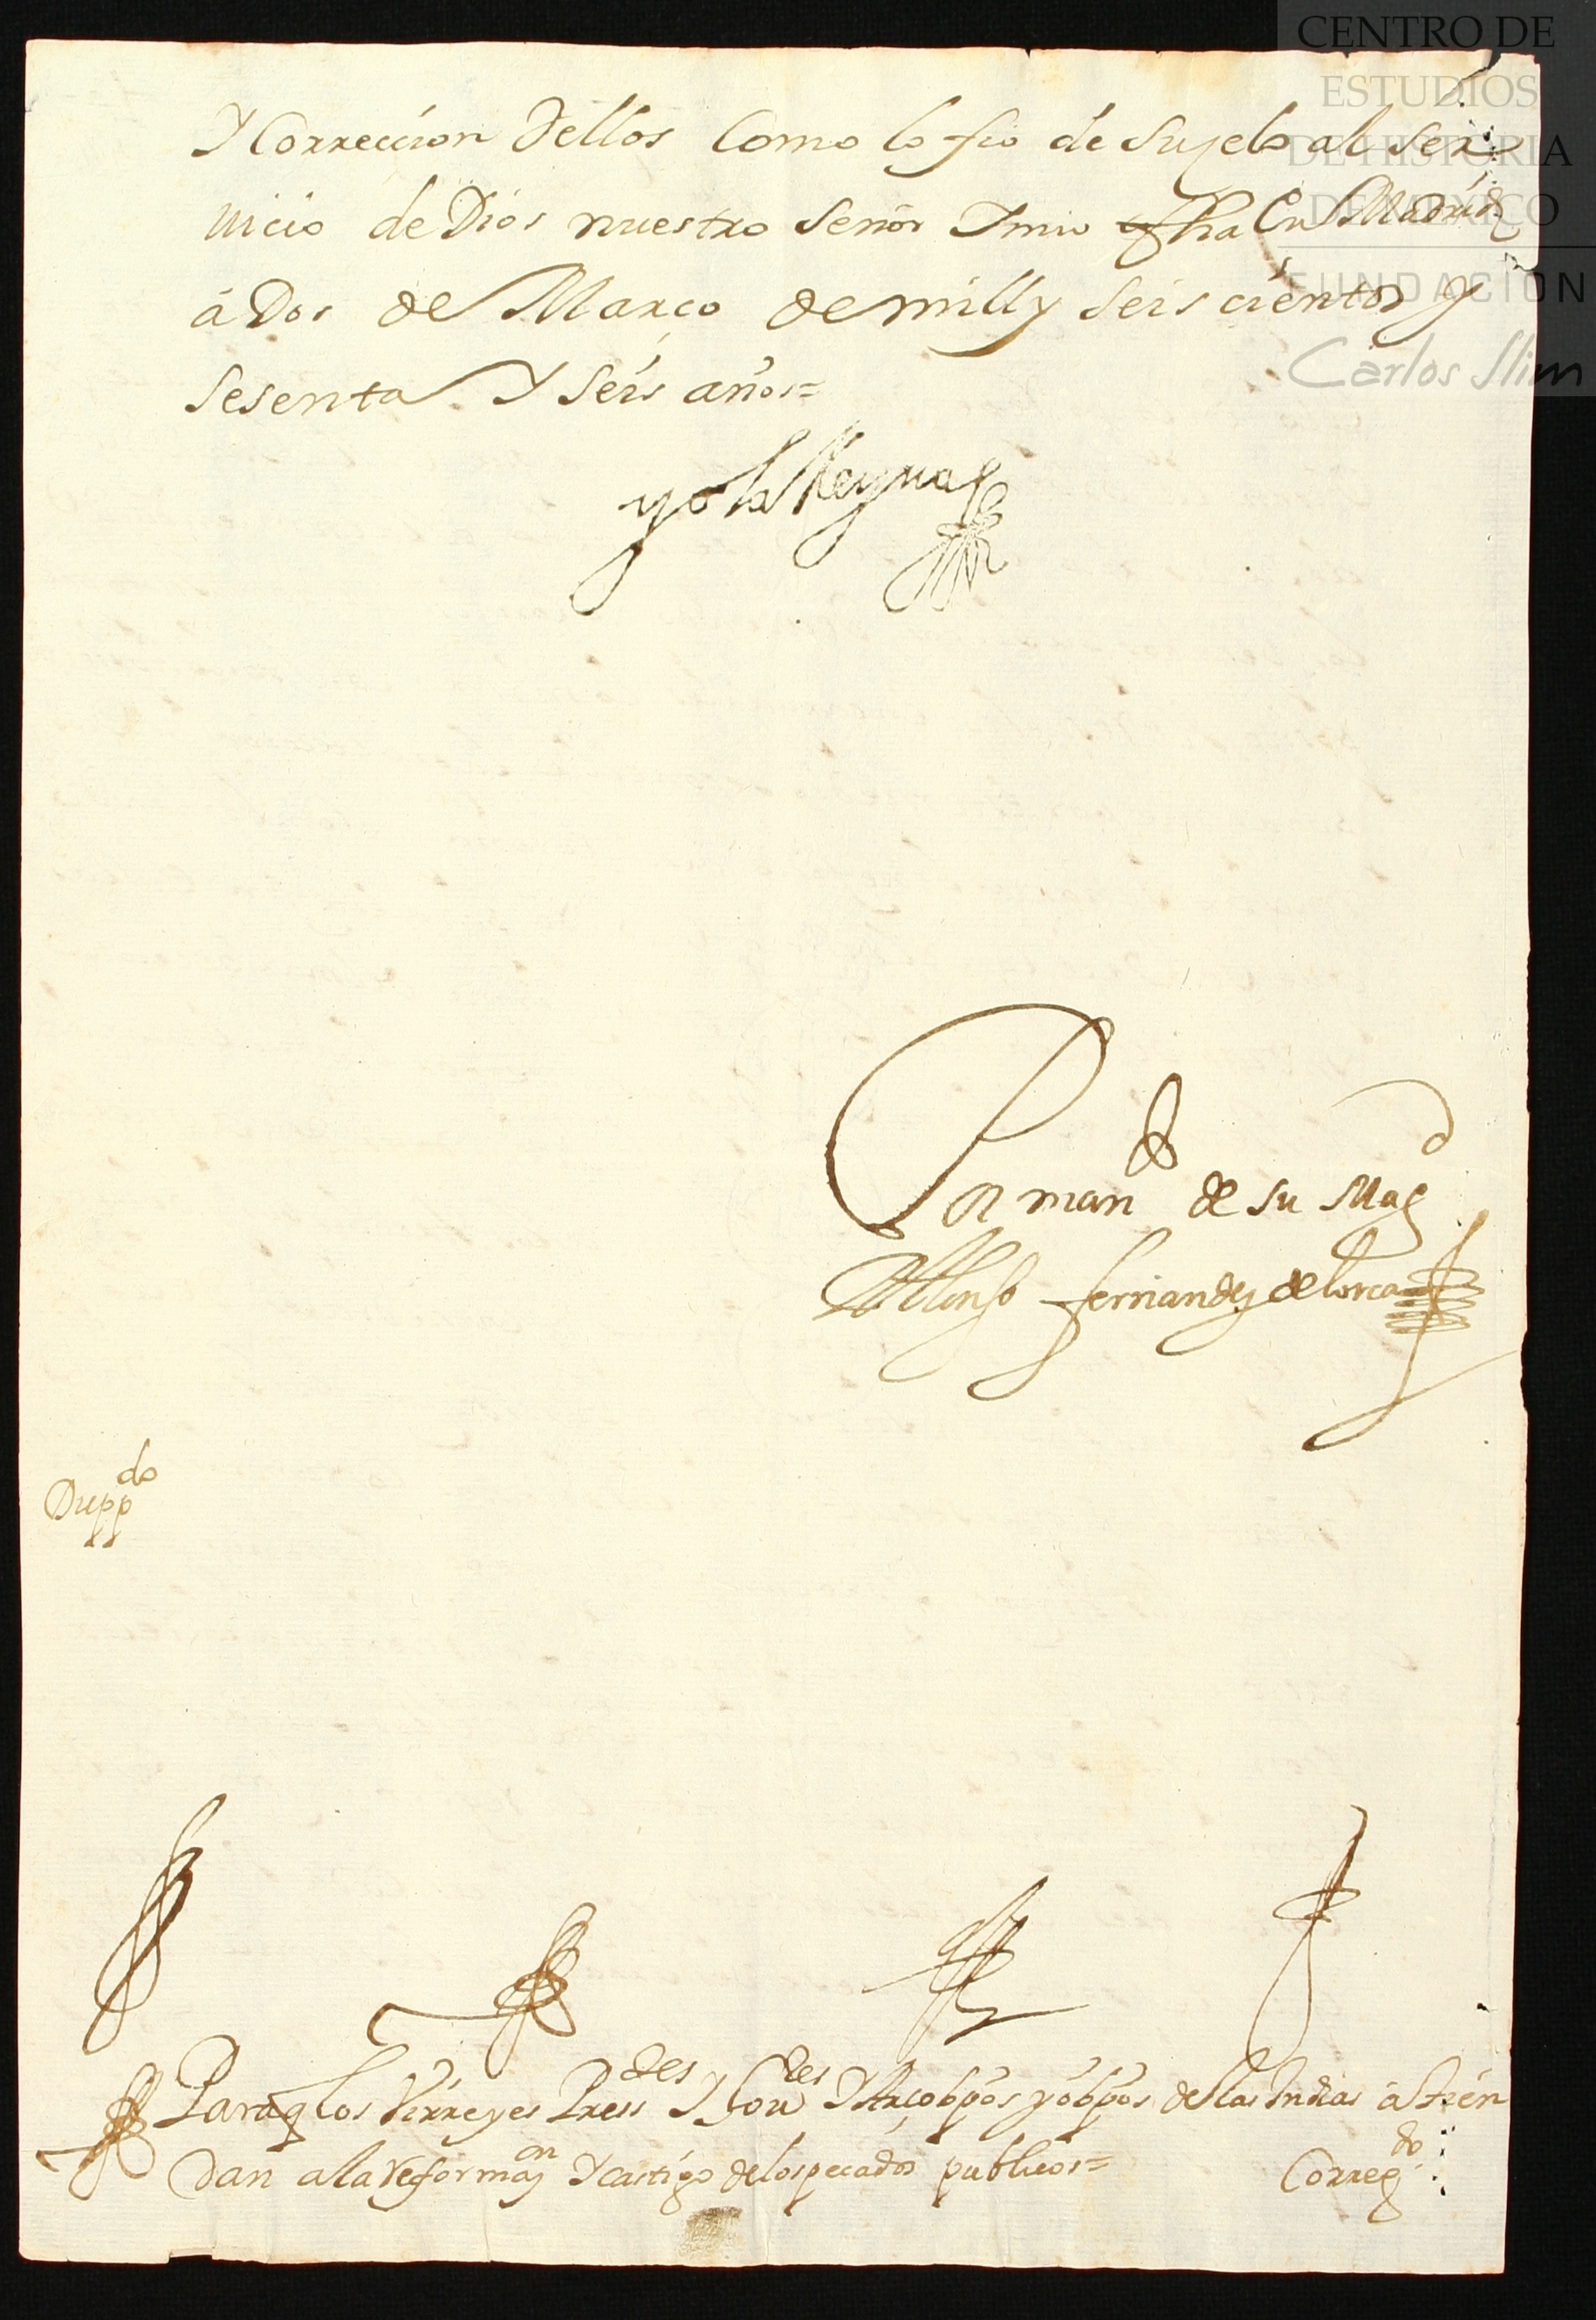 CENTRO DE
ESTUDIOS
DE HISTORIA
DE MÉXICO
FUNDACIÓN
Carlos Slim
Y Correccion dellos Como lo fio de Su zelo al Ser
uicio de Dios nuestro Señor Y mio fha En Madrid
á Dos de Março de mill y Seis cientos y
Sesenta Y Seis años=
yo la Reyna
Por man.do de su Mag.d
Alonso fernandez de lorca
Dupp.do
Para q los Virreyes Press.des Y Gou.res Y Arçobpos y obpos de las Indias atien
dan a la reformaz.on Y castigo de los pecados publicos=
Correg.do